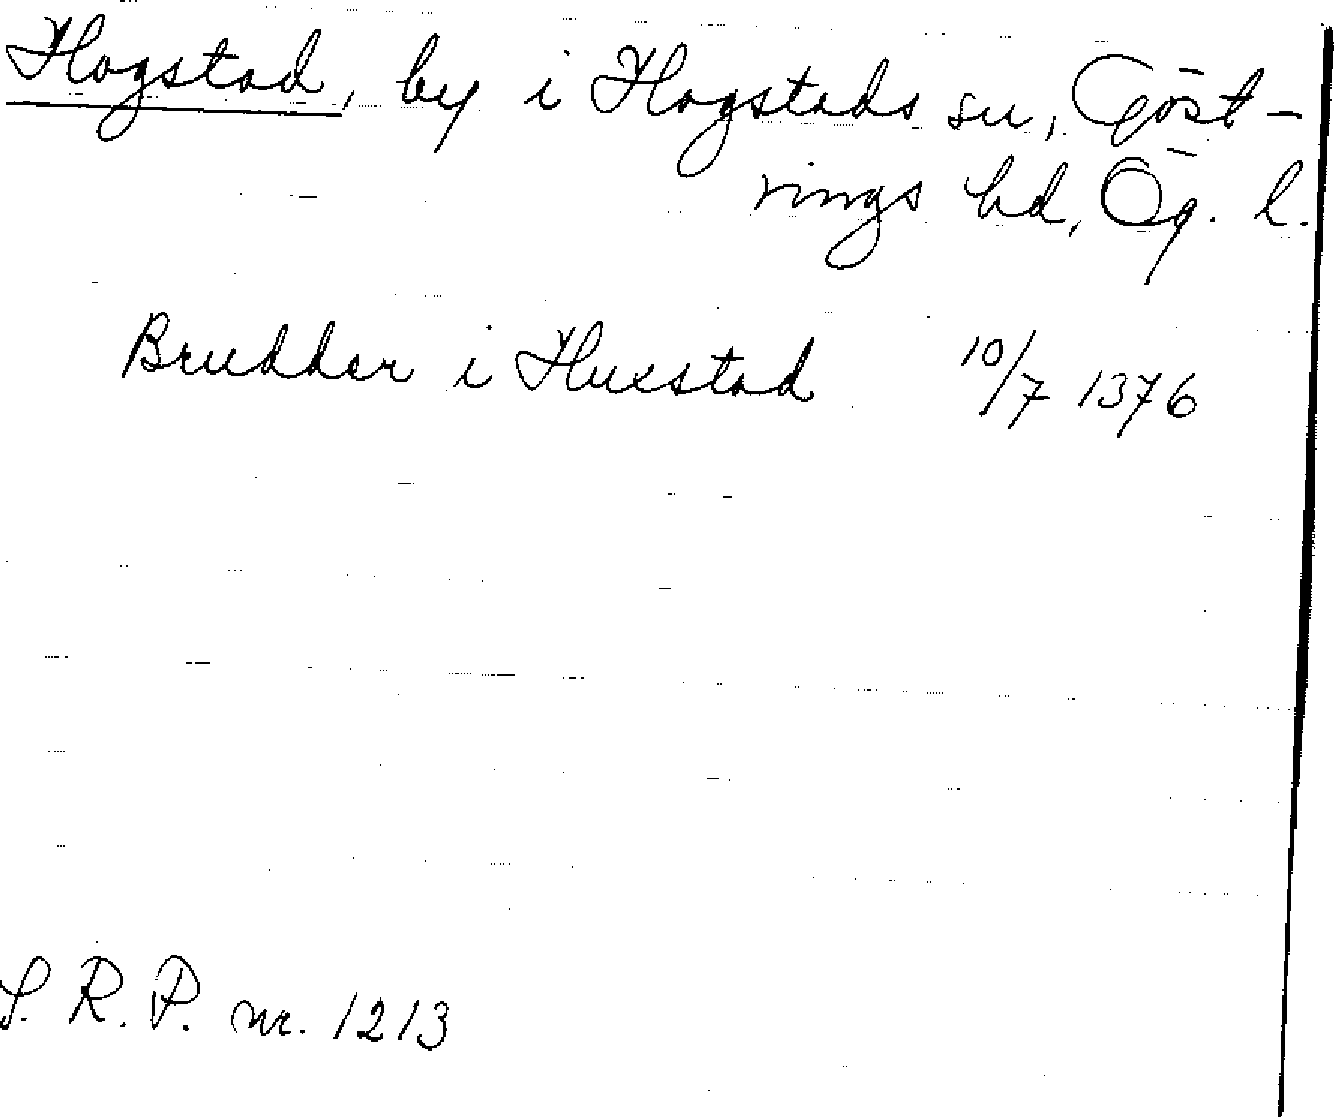 Hogstad, by i Hogstads sn, Göst-
rings hd, Ög. l.
Bruddar i Huxstad 10/7 1376
S. R. P. nr. 1213